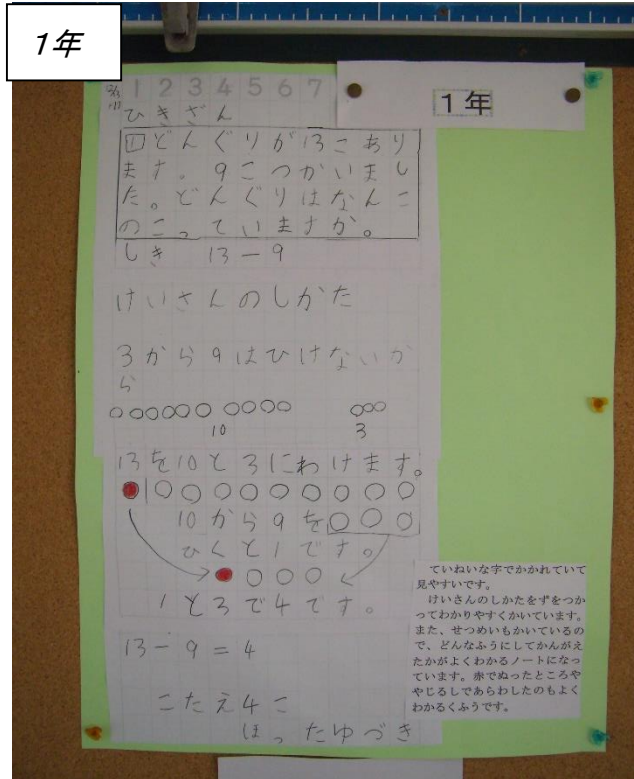 1年
1年
1 2 3 4 5 6 7
ひきざん
1どんぐりが13こあり
ます。9こつかいまし
た。どんぐりはなんこ
のこっていますか。
しき 13-9
けいさんのしかた
3から9はひけないか
ら
10 3
13を10と3にわけます。
10から9を
ひくと1です。
1と3で4です。
13-9=4
こたえ4こ
ほったゆづき
ていねいな字でかかれていて
見やすいです。
けいさんのしかたをずをつか
ってわかりやすくかいています。
また、せつめいもかいているの
で、どんなふうにしてかんがえ
たかがよくわかるノートになっ
ています。赤でぬったところや
やじるしであらわしたのもよく
わかるくふうです。